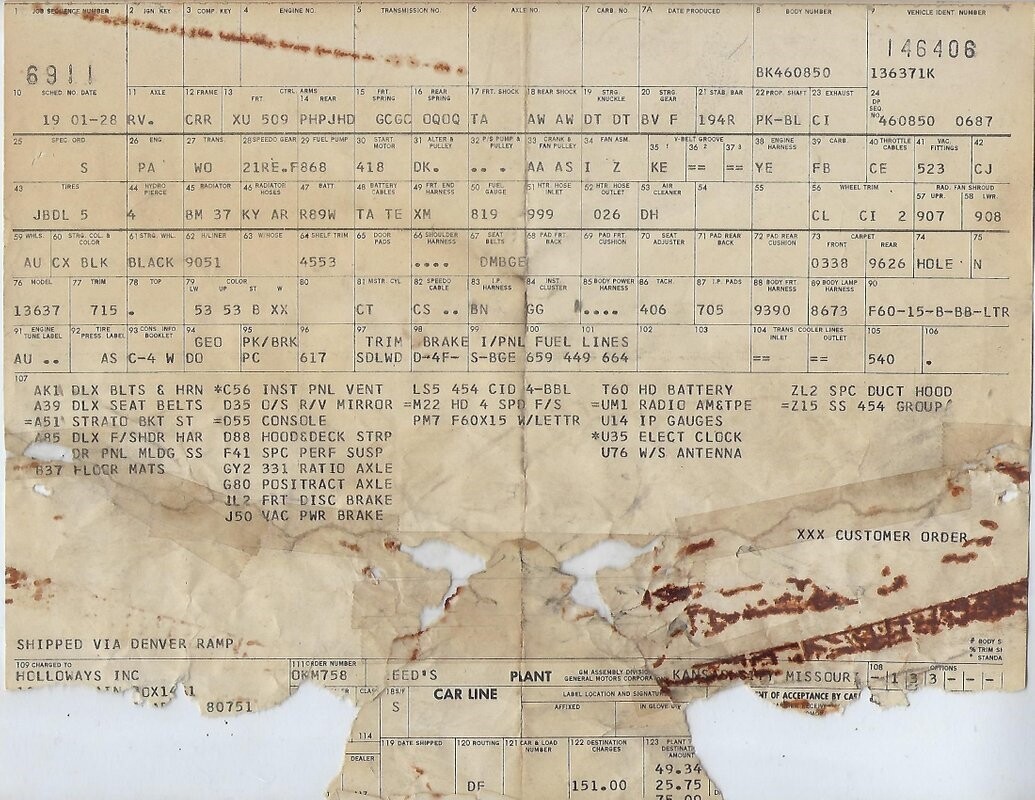 1 JOB SEQUENCE NUMBER 2 IGN KEY 3 COMP. KEY 4 ENGINE NO. 5 TRANSMISSION NO. 6 AXLE NO. 7 CARB. NO. 7A DATE PRODUCED 8 BODY NUMBER 9 VEHICLE IDENT NUMBER
6911 146406
BK460850 136371K
10 SCHED. NO. DATE 11 AXLE 12 FRAME 13 CTRL. ARMS FRT 14 REAR 15 FRT SPRING 16 REAR SPRING 17 FRT. SHOCK 18 REAR SHOCK 19 STRG. KNUCKLE 20 STRG GEAR 21 STAB. BAR 22 PROP. SHAFT 23 EXHAUST 24 DP SEQ. NO.
19 01-28 RV. CRR XU 509 PHPJHD GCGC OQOQ TA AW AW DT DT BV F 194R PK-BL CI 460850 0687
25 SPEC ORD 26 ENG. 27 TRANS. 28 SPEEDO GEAR 29 FUEL PUMP 30 START MOTOR 31 ALTER & PULLEY 32 P/S PUMP & PULLEY 33 CRANK & FAN PULLEY 34 FAN ASM. V-BELT GROOVE 35 1 36 2 37 3 38 ENGINE HARNESS 39 CARB. 40 THROTTLE CABLES 41 VAC. FITTINGS 42
S PA WO 21RE.F868 418 DK. .. . AA AS I Z KE == == YE FB CE 523 CJ
43 TIRES 44 HYDRO PIERCE 45 RADIATOR 46 RADIATOR HOSES 47 BATT 48 BATTERY CABLES 49 FRT. END HARNESS 50 FUEL GAUGE 51 HTR. HOSE INLET 52 HTR. HOSE OUTLET 53 AIR CLEANER 54 55 56 WHEEL TRIM RAD. FAN SHROUD 57 UPR. 58 LWR.
JBDL 5 4 BM 37 KY AR R89W TA TE XM 819 999 026 DH CL CI 2 907 908
59 WHLS. 60 STRG. COL. & COLOR 61 STRG. WHL. 62 H/LINER 63 W/HOSE 64 SHELF TRIM 65 DOOR PADS 66 SHOULDER HARNESS 67 SEAT BELTS 68 PAD FRT. BACK 69 PAD FRT. CUSHION 70 SEAT ADJUSTER 71 PAD REAR BACK 72 PAD REAR CUSHION 73 CARPET FRONT REAR 74 75
AU CX BLK BLACK 9051 4553 .... DMBGE 0338 9626 HOLE N
76 MODEL 77 TRIM 78 TOP 79 COLOR LW UP ST W 80 81 MSTR. CYL 82 SPEEDO CABLE 83 I.P. HARNESS 84 INST. CLUSTER 85 BODY POWER HARNESS 86 TACH. 87 I.P. PADS 88 BODY FRT. HARNESS 89 BODY LAMP HARNESS 90
13637 715 . 53 53 B XX CT CS .. BN GG .... 406 705 9390 8673 F60-15-B-BB-LTR
91 ENGINE TUNE LABEL 92 TIRE PRESS LABEL 93 CONS. INFO BOOKLET 94 95 96 97 98 99 100 101 102 103 104 TRANS. COOLER LINES INLET OUTLET 105 106
GEO PK/BRK TRIM BRAKE I/PNL FUEL LINES
AU .. AS C-4 W DO PC 617 SDLWD D-4F- S-BGE 659 449 664 == == 540 .
107
AK1 DLX BLTS & HRN *C56 INST PNL VENT LS5 454 CID 4-BBL T60 HD BATTERY ZL2 SPC DUCT HOOD
A39 DLX SEAT BELTS D35 O/S R/V MIRROR =M22 HD 4 SPD F/S =UM1 RADIO AM&TPE =Z15 SS 454 GROUP
=A51 STRATO BKT ST =D55 CONSOLE PM7 F60X15 W/LETTR U14 IP GAUGES
A85 DLX F/SHDR HAR D88 HOOD&DECK STRP *U35 ELECT CLOCK
DR PNL MLDG SS F41 SPC PERF SUSP U76 W/S ANTENNA
B37 FLOOR MATS GY2 331 RATIO AXLE
G80 POSITRACT AXLE
JL2 FRT DISC BRAKE
J50 VAC PWR BRAKE
XXX CUSTOMER ORDER
SHIPPED VIA DENVER RAMP
# BODY S
% TRIM SI
* STANDA
109 CHARGED TO 111 ORDER NUMBER PLANT GM ASSEMBLY DIVISION GENERAL MOTORS CORPORA 108 OPTIONS
HOLLOWAYS INC OKM758 EED'S KANSAS CITY MISSOURI - 1 3 3 - - -
80751
S CAR LINE LABEL LOCATION AND SIGNATUR
AFFIXED IN GLOVE
NT OF ACCEPTANCE BY CAR
114
DEALER
119 DATE SHIPPED 120 ROUTING 121 CAR & LOAD NUMBER 122 DESTINATION CHARGES 123 PLANT DESTINAT AMOUNT
49.34
DF 151.00 25.75
75.00